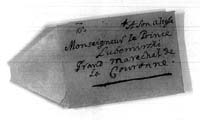 A Son altesse
Monseigneur le Prince
Lubomirski
Grand marechal de
la Couronne.